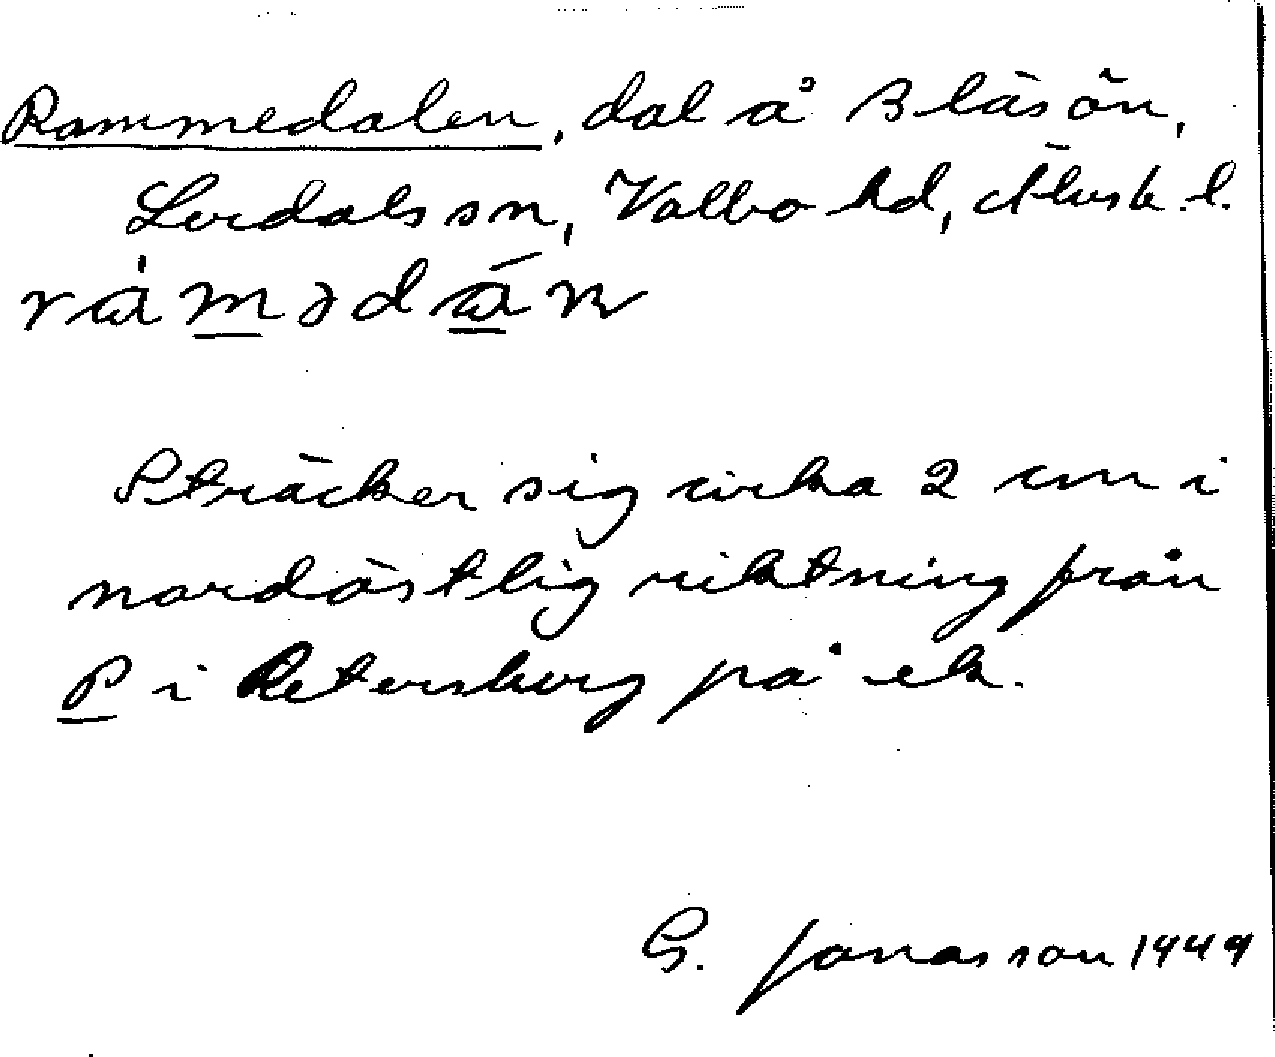 Rammedalen, dal å Bläsön,
Lerdals sn, Valbo hd, Älvsb. l.
Sträcker sig cirka 2 cm i
nordöstlig riktning från
P i Petersburg på ek.
G. Jonasson 1949